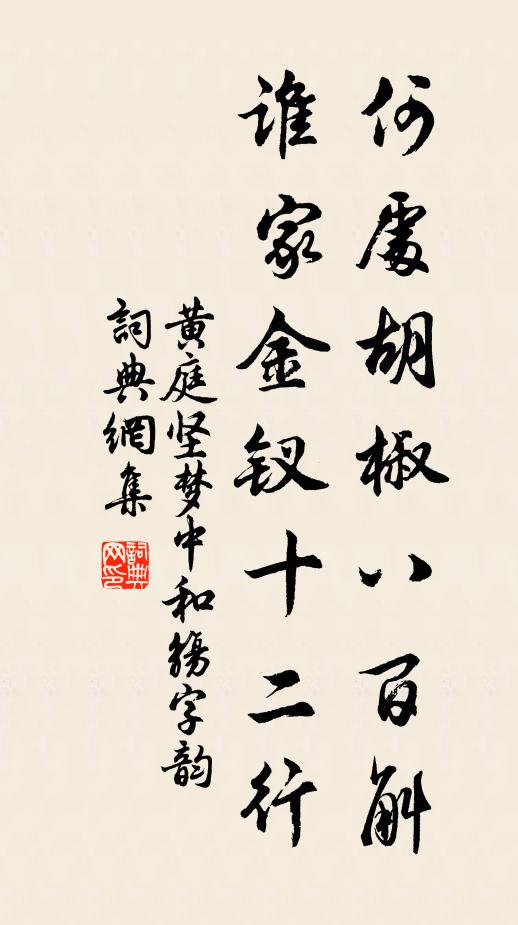 何處胡椒八百斛
谁家金钗十二行
黄庭坚梦中和觞字韵
詞典網集
詞典网印